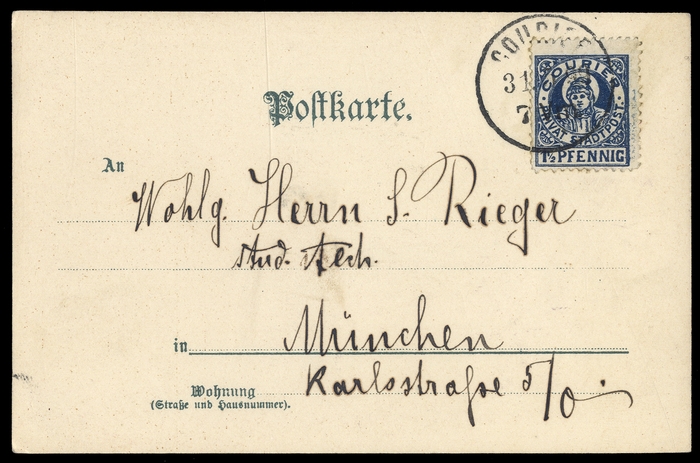 COURIER
31
7
COURIER
PRIVAT STADTPOST
1½ PFENNIG
Postkarte.
An
Wohlg. Herrn S. Rieger
stud. tech.
in München
Karlsstraße 5/0.
Wohnung
(Straße und Hausnummer).